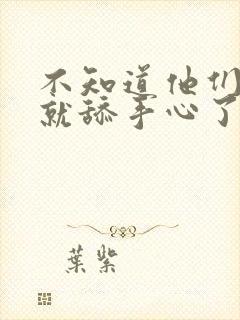 不知道他们
就舔手心了
葉紫